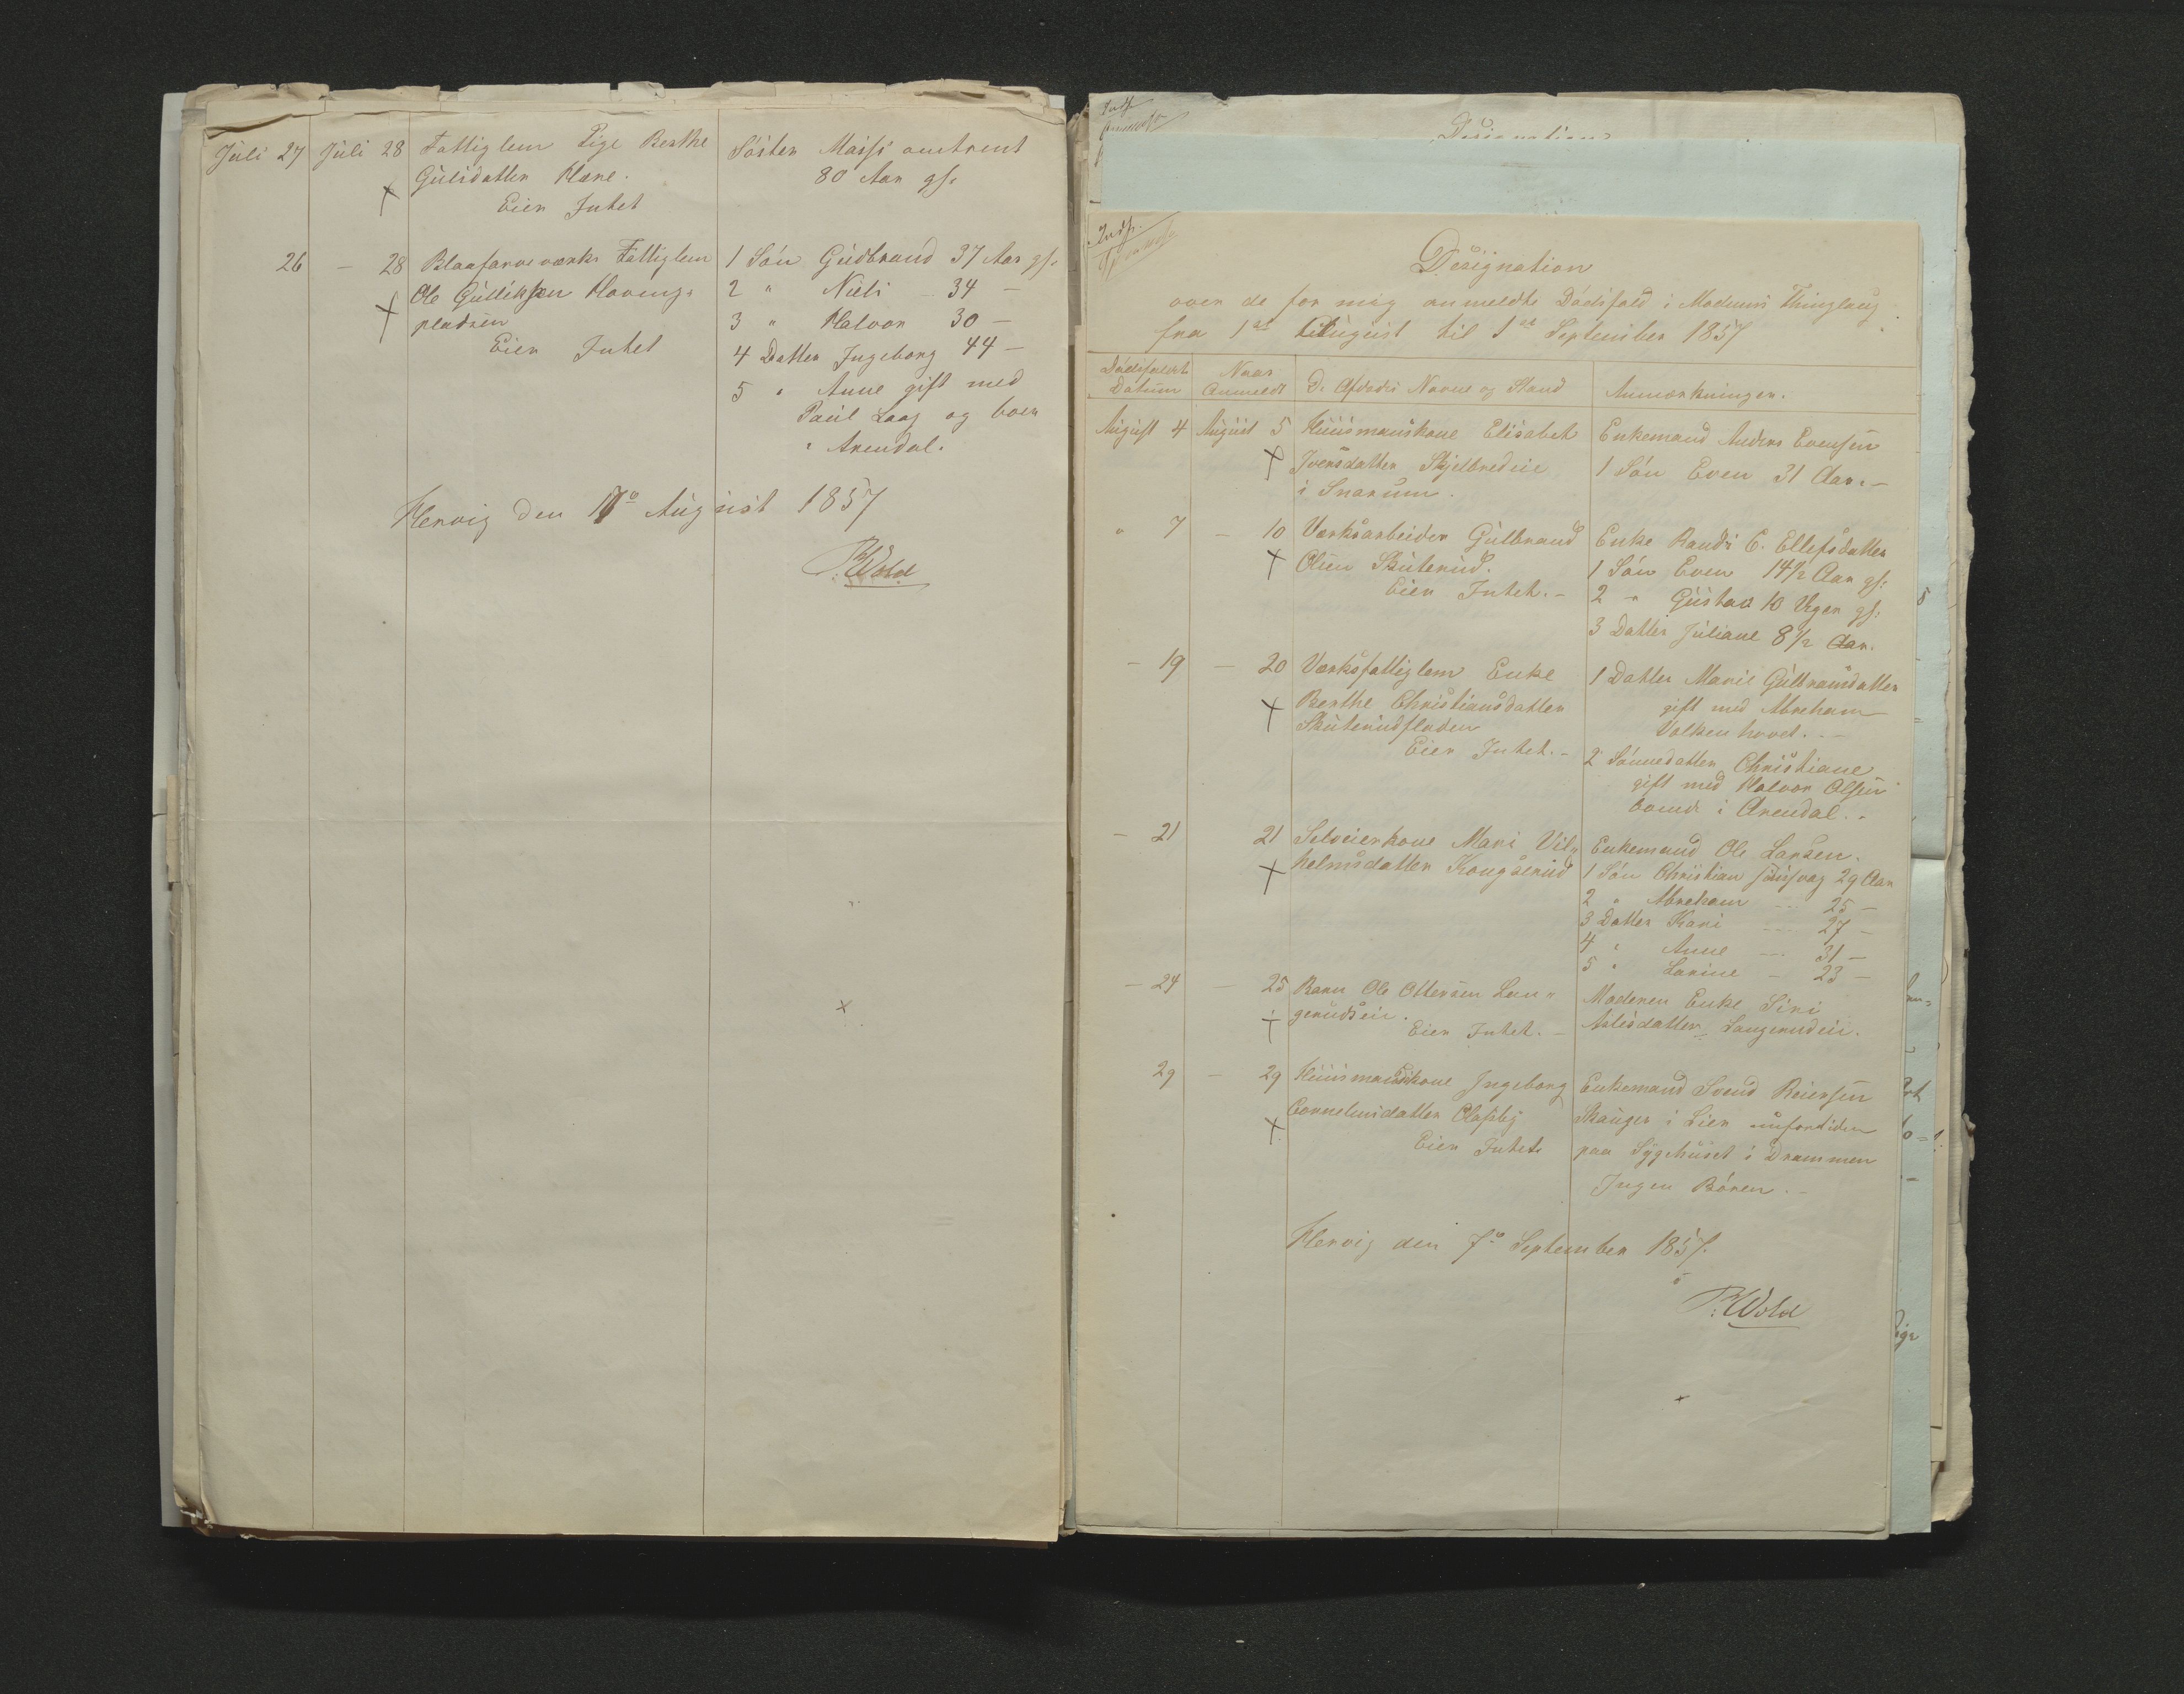 Juli 27 Juli 28 Fattiglem Pige Berthe
Gulsdatter Hære.
Eier Intet
Søster omtrent
80 Aar gl.
26 — 28 Blaafarveværks Fattiglem
Ole Gulliksen Hovengs
pladsen
Eier Intet
1 Søn Gudbrand 37 Aar gl.
2 " Niels 34 —
3 " Halvor 30 —
4 Datter Ingeborg 44 —
5 " Anne gift med
Paul Laag og boer
i Arendal.
Hervig den 17de August 1857
P. Wold
Designation
Indf.
Designation
over de for mig anmeldte Dødsfald i Modums Thinglaug
fra 1ste August til 1st September 1857
Dødsfaldets
Datum
Naar
Anmeldt
De Afdødes Navne og Stand
Anmærkninger.
August 4 August 5 Huusmandskone Elisabet
Iversdatter Skjelbredeie
i Snarum.
Enkemand Anders Evensen
1 Søn Even 31 Aar. —
" 7 — 10 Værksarbeider Gulbrand
Olsen Skuterud.
Eier Intet. —
Enke Randi C. Ellefsdatter
1 Søn Even 14½ Aar gl:
2 " Gustav 10 Uger gl:
3 Datter Juliane 8½ Aar.
— 19 — 20 Værksfattiglem Enke
Berthe Christiansdatter
Skuterudfladen
Eier Intet. —
1 Datter Marie Gulbransdatter
gift med Abreham
Valkenhovet. —
2 Sønnedatter Christiane
gift med Halvor Olsen
boende i Arendal. —
— 21 21 Selveierkone Mari Vil,,
helmsdatter Kongserud
Enkemand Ole Larsen.
1 Søn Christian 29 Aar
2 " Abreham — 25 —
3 Datter Kari — 27 —
4 " Anne — 31 —
5 " Larine — 23 —
— 24 — 25 Barn Ole Ottersen Lan,,
gerudseie.
Eier Intet. —
Moderen Enke Siri
Aslesdatter Langerudeie.
29 — 29 Huusmandskone Ingeborg
Corneliusdatter Olafsby
Eier Intet.
Enkemand Svend Reiersen
Skauger i Lier nufortiden
paa Sygehuset i Drammen
Ingen Børen. —
Hervig den 7de September 1857.
P. Wold